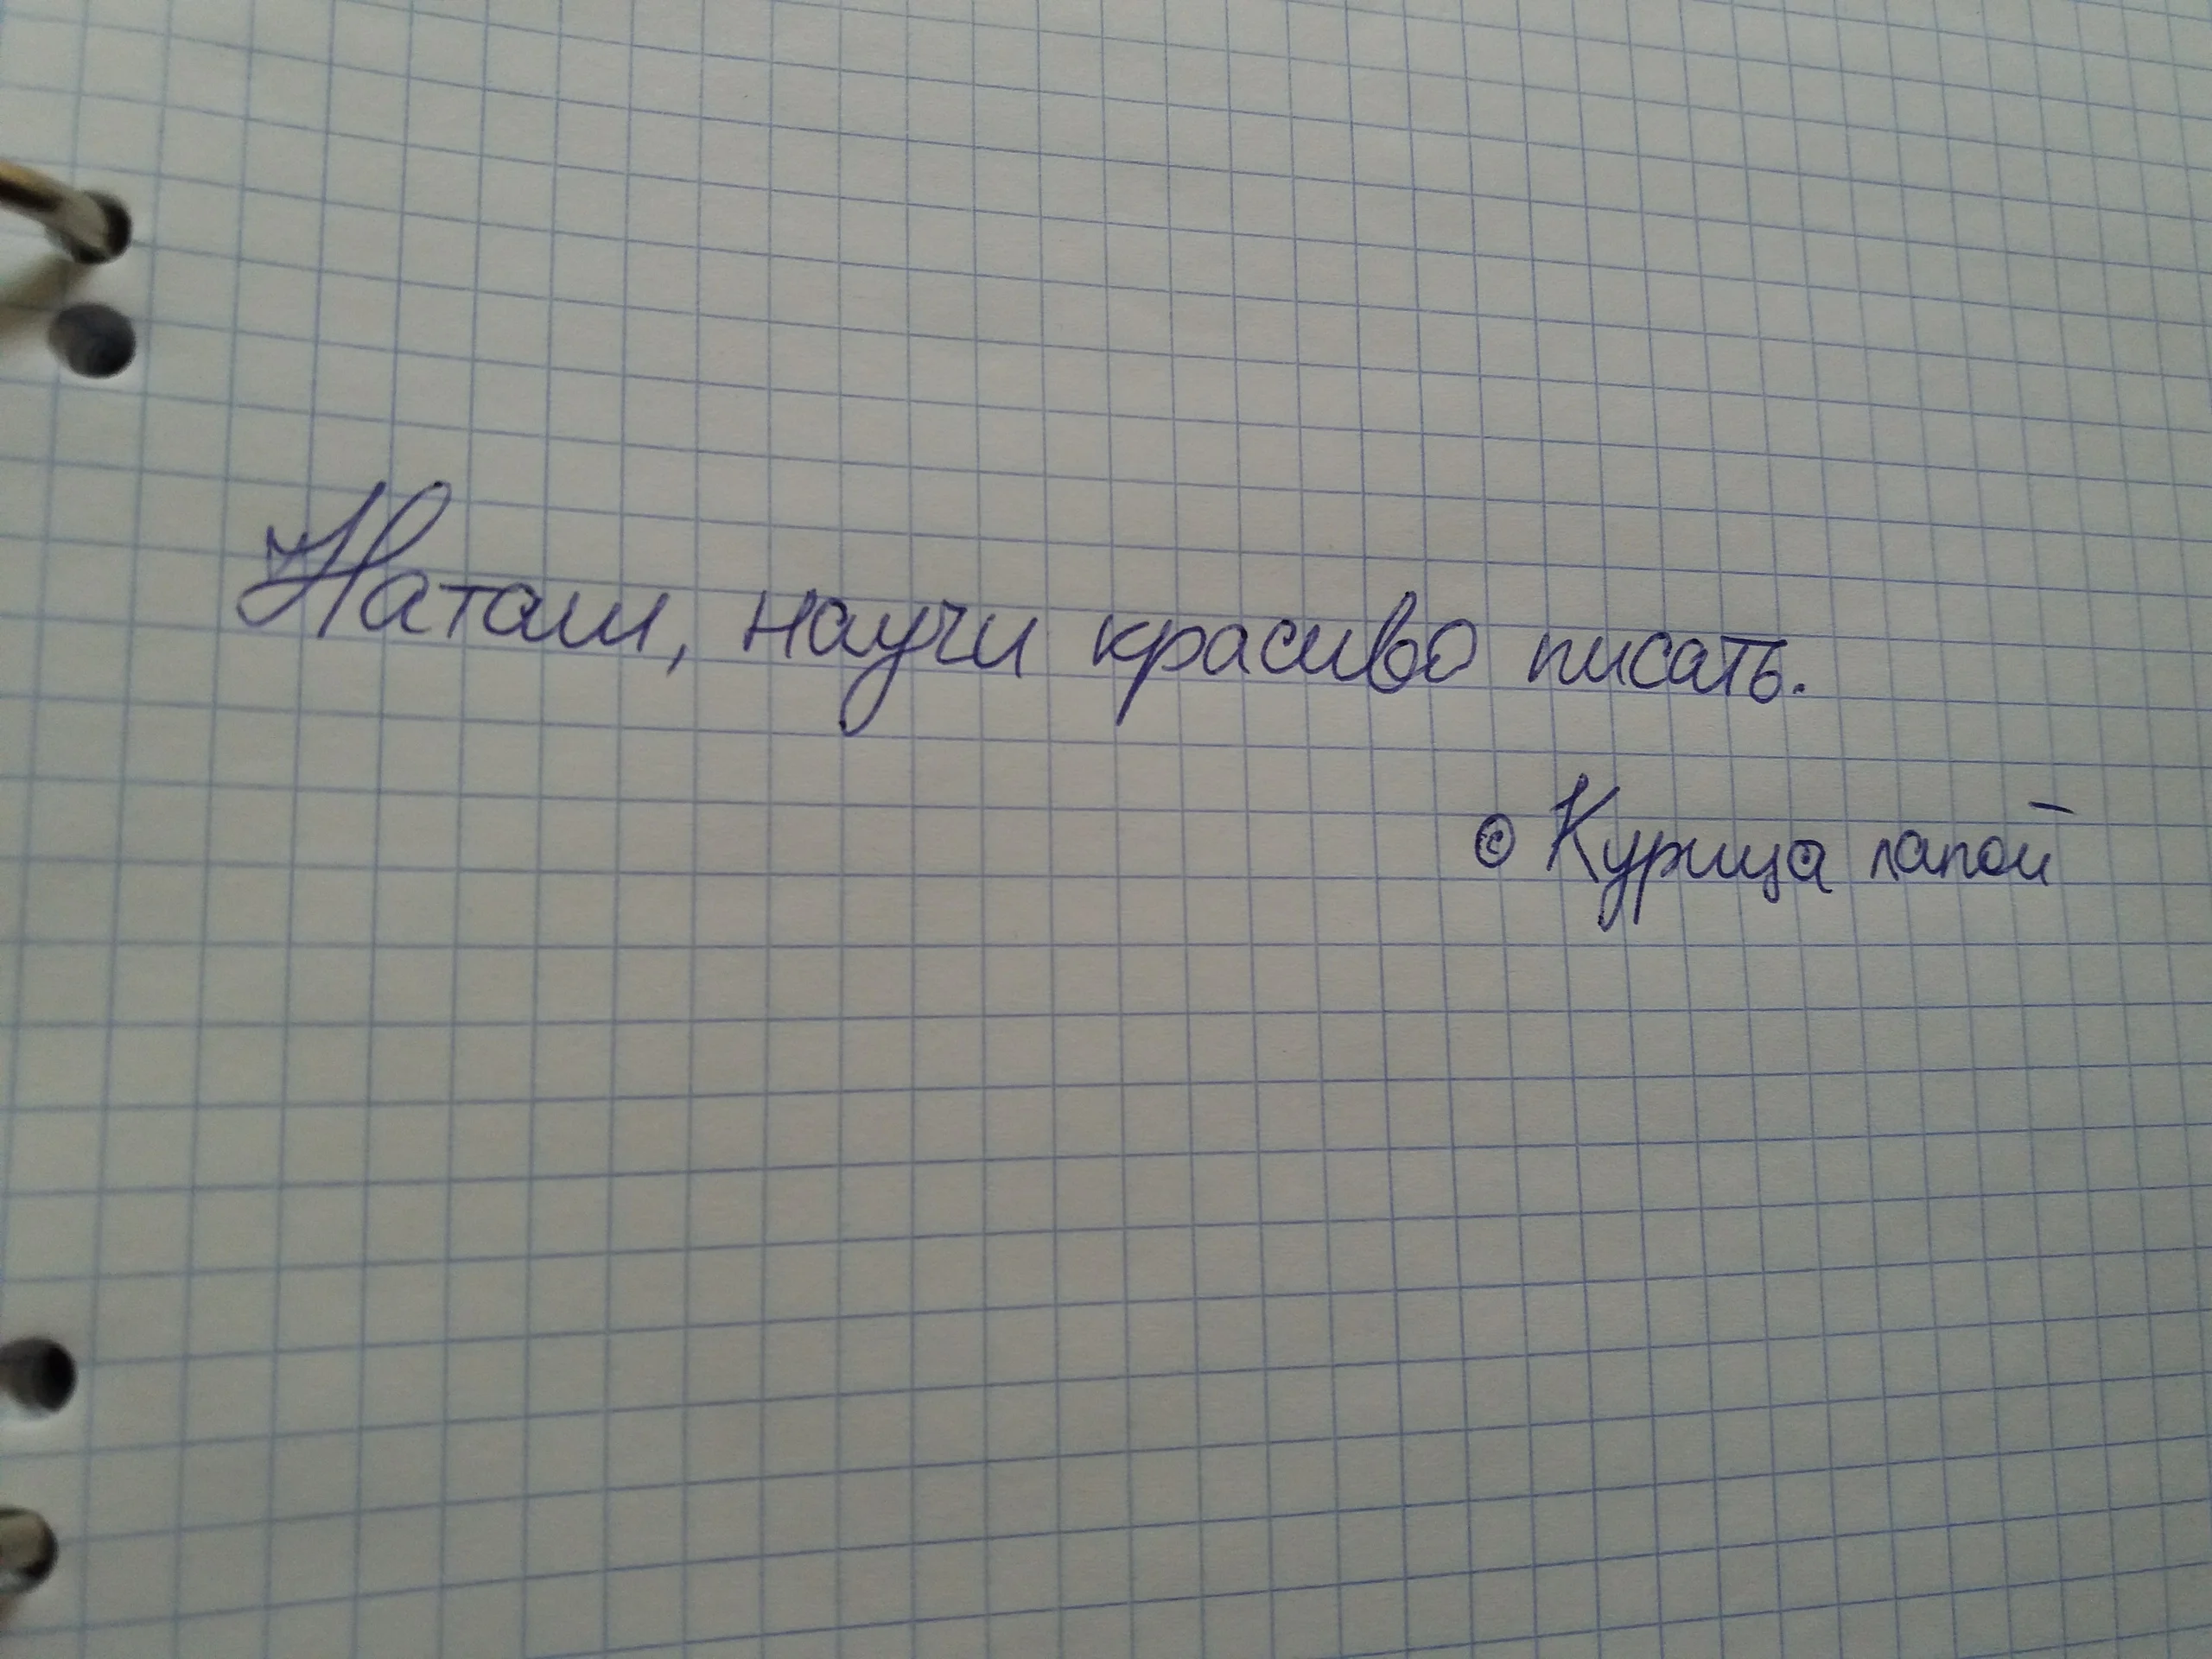 Наташ, научи красиво писать.
© Курица лапой